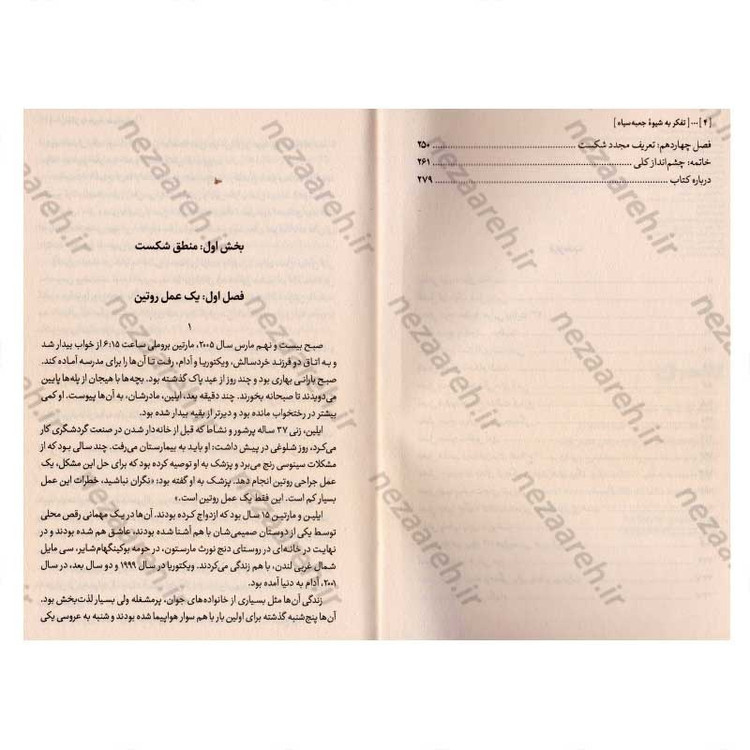 [ ۴ ] ... [ تفکر به شیوهٔ جعبه‌سیاه ]
فصل چهاردهم: تعریف مجدد شکست ........ ۲۵۰
خاتمه: چشم‌انداز کلی ........ ۲۶۱
درباره کتاب ........ ۲۷۹
بخش اول: منطق شکست
فصل اول: یک عمل روتین
۱
صبح بیست و نهم مارس سال ۲۰۰۵، مارتین بروملی ساعت ۶:۱۵ از خواب بیدار شد
و به اتاق دو فرزند خردسالش، ویکتوریا و آدام، رفت تا آن‌ها را برای مدرسه آماده کند.
صبح بارانی بهاری بود و چند روز از عید پاک گذشته بود. بچه‌ها با هیجان از پله‌ها پایین
می‌دویدند تا صبحانه بخورند. چند دقیقه بعد، ایلین، مادرشان، به آن‌ها پیوست. او کمی
بیشتر در رختخواب مانده بود و دیرتر از بقیه بیدار شده بود.
ایلین، زنی ۳۷ ساله پرشور و نشاط که قبل از خانه‌دار شدن در صنعت گردشگری کار
می‌کرد، روز شلوغی در پیش داشت: او باید به بیمارستان می‌رفت. چند سالی بود که از
مشکلات سینوسی رنج می‌برد و پزشک به او توصیه کرده بود که برای حل این مشکل، یک
عمل جراحی روتین انجام دهد. پزشک به او گفته بود: «نگران نباشید، خطرات این عمل
بسیار کم است. این فقط یک عمل روتین است.»
ایلین و مارتین ۱۵ سال بود که ازدواج کرده بودند. آن‌ها در یک مهمانی رقص محلی
توسط یکی از دوستان صمیمی‌شان با هم آشنا شده بودند، عاشق هم شده بودند و در
نهایت در خانه‌ای در روستای دنج نورث مارستون، در حومه بوکینگهام‌شایر، سی مایل
شمال غربی لندن، با هم زندگی می‌کردند. ویکتوریا در سال ۱۹۹۹ و دو سال بعد، در سال
۲۰۰۱، آدام به دنیا آمده بود.
زندگی آن‌ها مثل بسیاری از خانواده‌های جوان، پرمشغله ولی بسیار لذت‌بخش بود.
آن‌ها پنج‌شنبه گذشته برای اولین بار با هم سوار هواپیما شده بودند و شنبه به عروسی یکی
nezaareh.ir